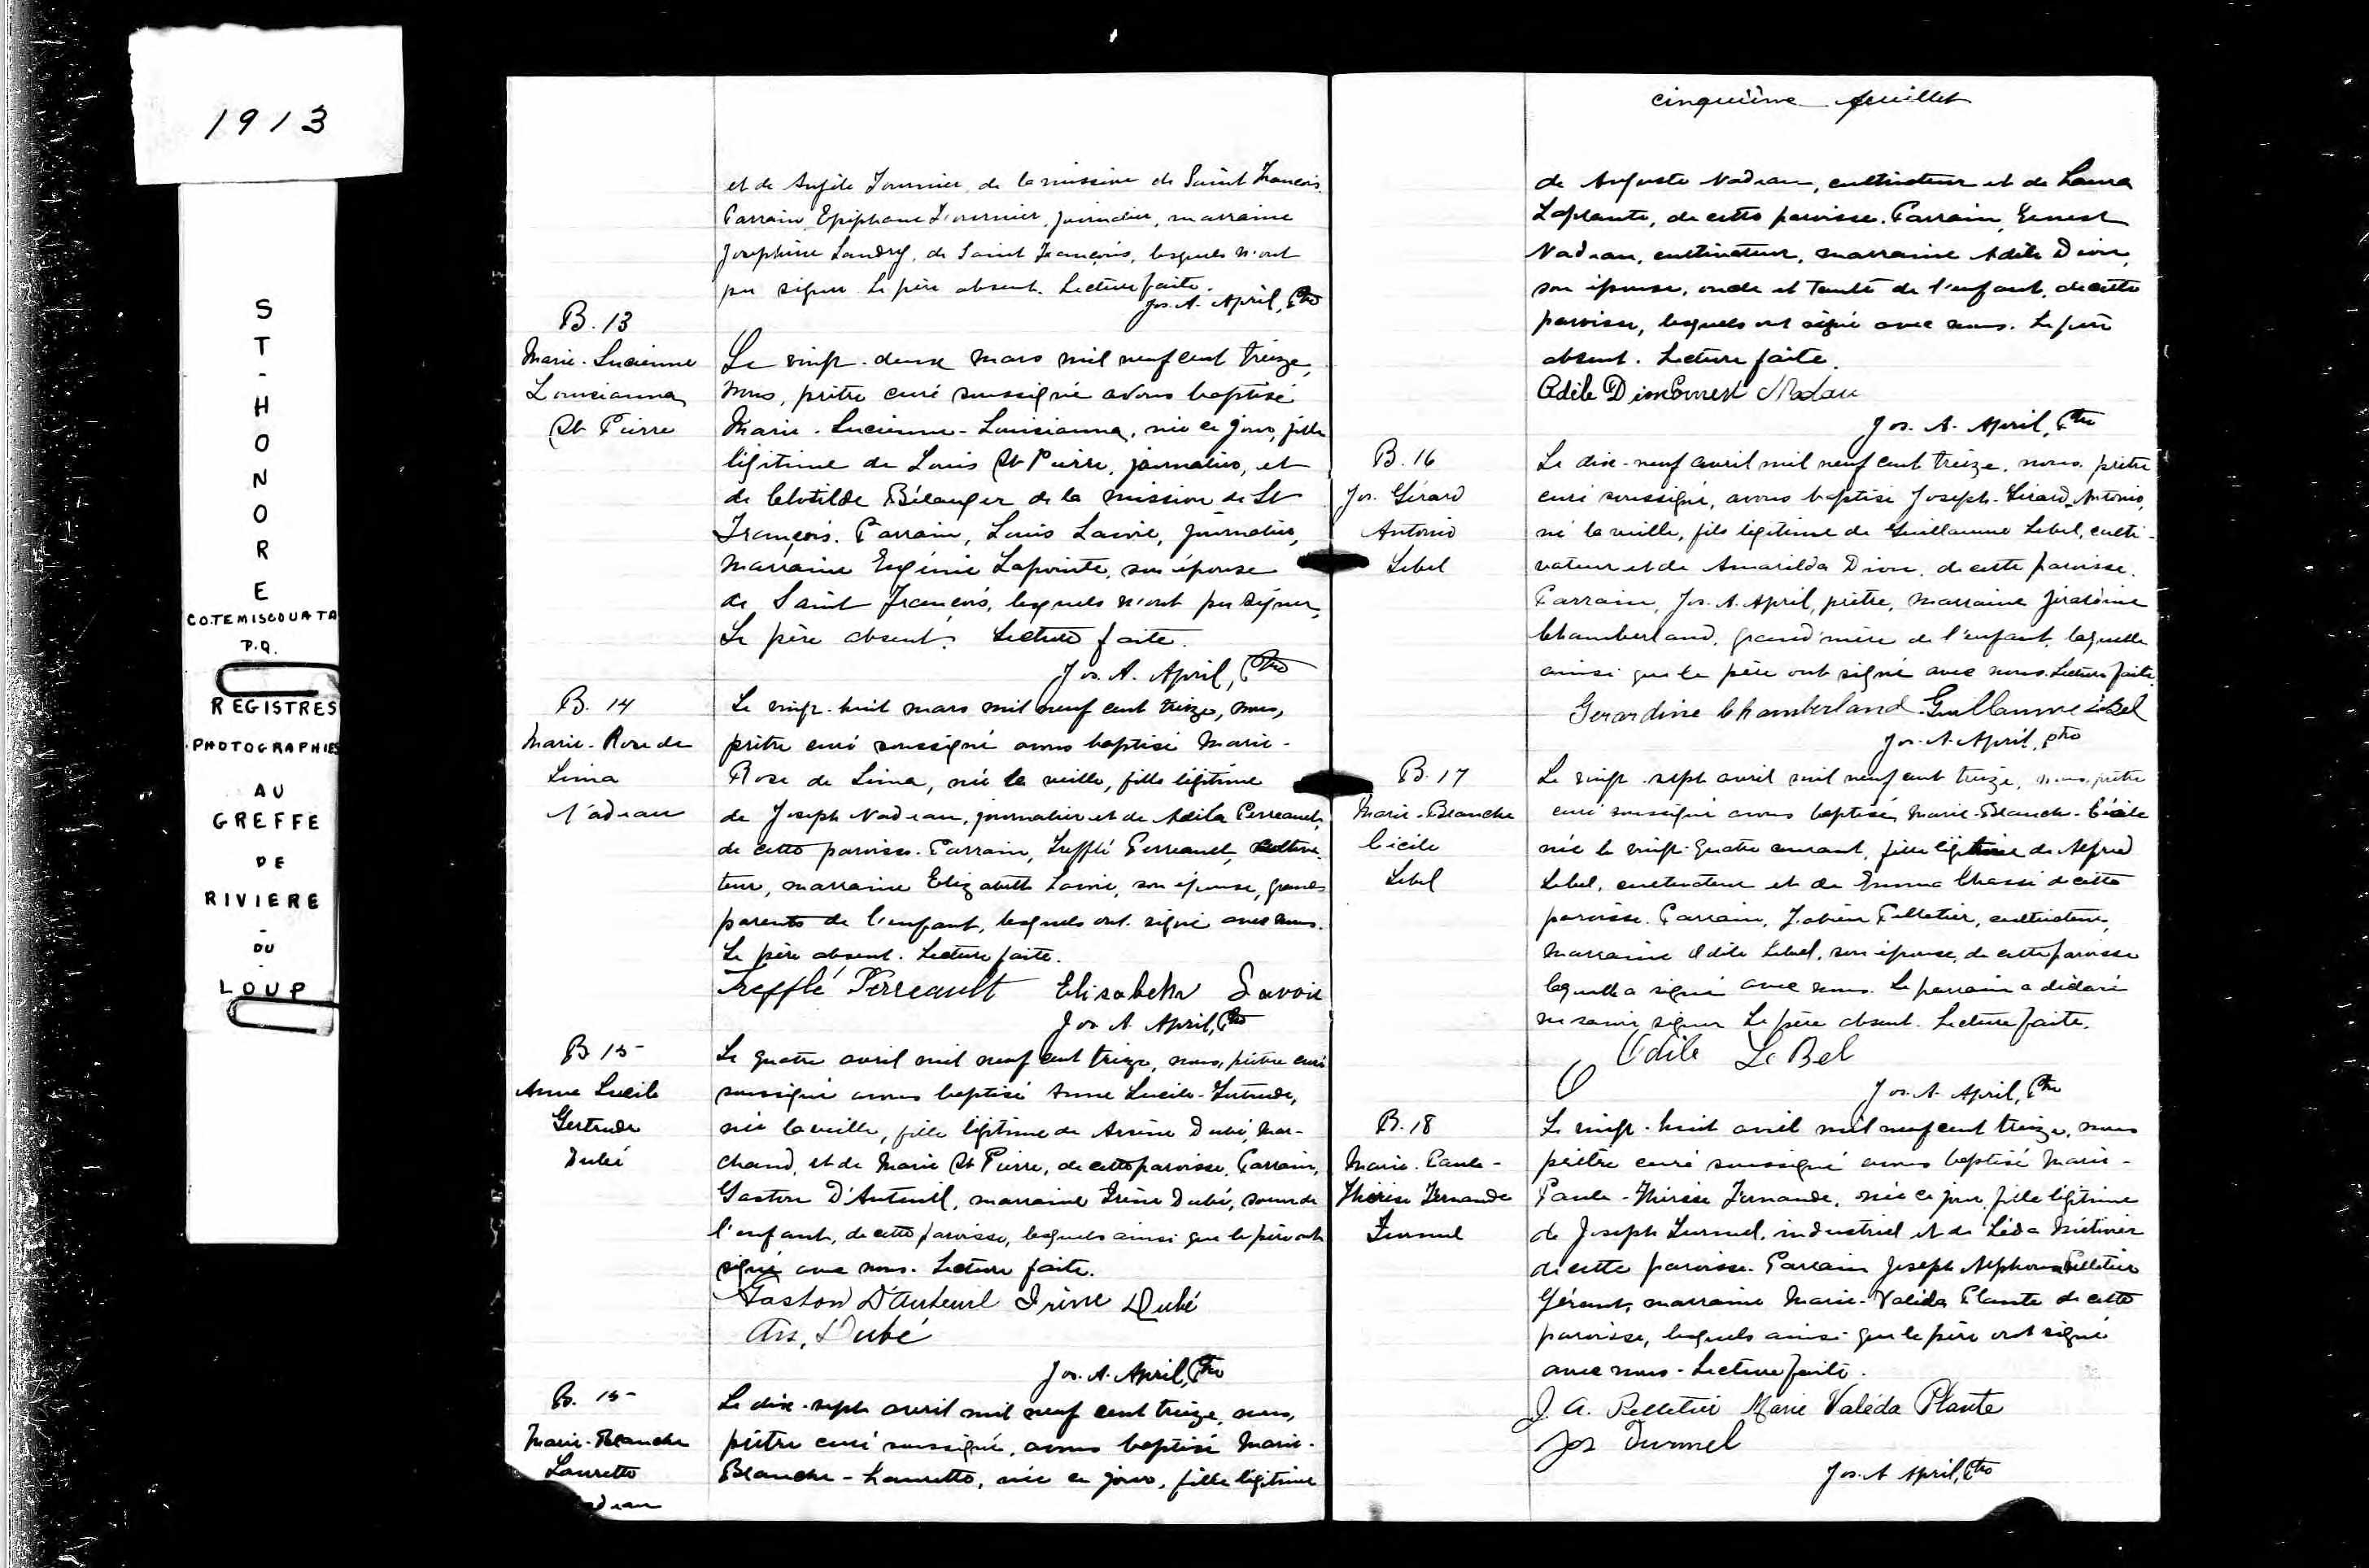 1913
ST-HONORE
CO.TEMISCOUATA
P.Q.
REGISTRES
PHOTOGRAPHIES
AU
GREFFE
DE
RIVIERE
-
DU
-
LOUP
et de Angèle Fournier, de la mission de Saint François.
Parrain, Epiphane Fournier, journalier, marraine
Joséphine Landry, de Saint François, lesquels n'ont
pu signer. Le père absent. Lecture faite.
Jos. A. April, Ptre
B. 13
Marie-Lucienne
Louisianna
St Pierre
Le vingt-deux mars mil neuf cent treize,
nous, prêtre curé soussigné avons baptisé
Marie-Lucienne-Louisianna, née ce jour, fille
légitime de Louis St Pierre, journalier, et
de Clotilde Bélanger de la mission de St
François. Parrain, Louis Lavoie, journalier,
marraine Eugénie Lapointe, son épouse
de Saint François, lesquels n'ont pu signer,
Le père absent. Lecture faite.
Jos. A. April, Ptre
B. 14
Marie-Rose de
Lima
Nadeau
Le vingt-huit mars mil neuf cent treize, nous,
prêtre curé soussigné avons baptisé Marie-
Rose de Lima, née la veille, fille légitime
de Joseph Nadeau, journalier et de Adéla Perreault,
de cette paroisse. Parrain, Trefflé Perreault, cultiva-
teur, marraine Elizabeth Lavoie, son épouse, grands
parents de l'enfant, lesquels ont signé avec nous.
Le père absent. Lecture faite.
Trefflé Perreault Elisabeth Lavoie
Jos. A. April, Ptre
B 15
Anne Lucile
Gertrude
Dubé
Le quatre avril mil neuf cent treize, nous, prêtre curé
soussigné avons baptisé Anne Lucile-Gertrude,
née la veille, fille légitime de Arsène Dubé, mar-
chand, et de Marie St Pierre, de cette paroisse. Parrain,
Gaston D'Auteuil, marraine Irène Dubé, soeur de
l'enfant, de cette paroisse, lesquels ainsi que le père ont
signé avec nous. Lecture faite.
Gaston D'Auteuil Irène Dubé
Ars. Dubé
Jos. A. April, Ptre
B. 15
Marie-Blanche
Lauretto
adeau
Le dix-sept avril mil neuf cent treize, nous,
prêtre curé soussigné, avons baptisé Marie-
Blanche-Lauretto, née ce jour, fille légitime
cinquième feuillet
de Auguste Nadeau, cultivateur et de Laura
Laplante, de cette paroisse. Parrain, Ernest
Nadeau, cultivateur, marraine Adèle Dion,
son épouse, oncle et tante de l'enfant, de cette
paroisse, lesquels ont signé avec nous. Le père
absent. Lecture faite.
Adèle Dion Ernest Nadeau
Jos. A. April, Ptre
B. 16
Jos. Gérard
Antonio
Lebel
Le dix-neuf avril mil neuf cent treize, nous, prêtre
curé soussigné, avons baptisé Joseph-Gérard-Antonio,
né la veille, fils légitime de Guillaume Lebel, culti-
vateur et de Amarilda Dion, de cette paroisse.
Parrain, Jos. A. April, prêtre, marraine
Chamberland, grand'mère de l'enfant, laquelle
ainsi que le père ont signé avec nous. Lecture faite.
Gerardine Chamberland Guillaume Lebel
Jos. A. April, ptre
B. 17
Marie-Blanche
Cécile
Lebel
Le vingt-sept avril mil neuf cent treize, nous, prêtre
curé soussigné avons baptisé, Marie-Blanche-Cécile
née le vingt-quatre courant, fille légitime de Alfred
Lebel, cultivateur et de Emma Chassé de cette
paroisse. Parrain, Fabien Pelletier, cultivateur,
marraine Odile Lebel, son épouse, de cette paroisse
laquelle a signé avec nous. Le parrain a déclaré
ne savoir signer. Le père absent. Lecture faite.
Odile LeBel
Jos. A. April, Ptre
B. 18
Marie-Paule-
Thérèse Fernande
Turmel
Le vingt-huit avril mil neuf cent treize, nous
prêtre curé soussigné avons baptisé Marie-
Paule-Thérèse Fernande, née ce jour, fille légitime
de Joseph Turmel, industriel et de Léda Métivier
de cette paroisse. Parrain Joseph Alphonse Pelletier
Gérant, marraine Marie-Valéda Plante de cette
paroisse, lesquels ainsi que le père ont signé
avec nous. Lecture faite.
J. A. Pelletier Marie Valéda Plante
Jos Turmel
Jos. A April, Ptre